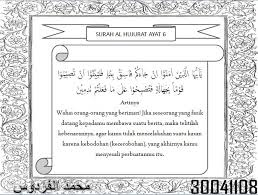 SURAH AL HUJURAT AYAT 6
يَا أَيُّهَا الَّذِينَ آمَنُوا إِنْ جَاءَكُمْ فَاسِقٌ بِنَبَإٍ فَتَبَيَّنُوا أَنْ تُصِيبُوا
قَوْمًا بِجَهَالَةٍ فَتُصْبِحُوا عَلَىٰ مَا فَعَلْتُمْ نَادِمِينَ
Artinya
Wahai orang-orang yang beriman! Jika seseorang yang fasik
datang kepadamu membawa suatu berita, maka telitilah
kebenarannya, agar kamu tidak mencelakakan suatu kaum
karena kebodohan (kecerobohan), yang akhirnya kamu
menyesali perbuatanmu itu.
محمد الفردوس
30041108